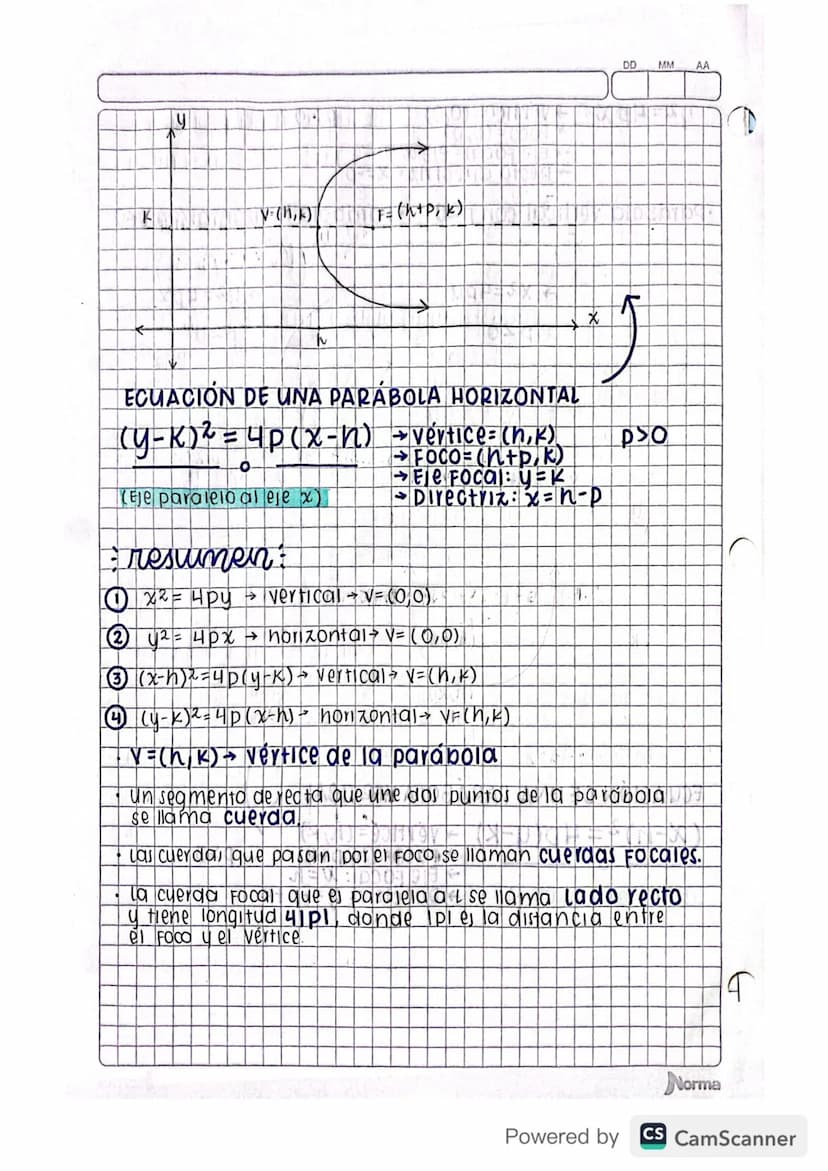 DD MM AA
y
K V=(h,k) F=(h+p,k)
x
h
ECUACIÓN DE UNA PARÁBOLA HORIZONTAL
(y-k)² = 4p(x-h) → vértice=(h,k) p>0
→ Foco=(h+p,k)
→ Eje Focal: y=k
(Eje paralelo al eje x) → Directriz: x=h-p
resumen:
① x²=4py → vertical → v=(0,0).
② y²= 4px → horizontal → v=(0,0)
③ (x-h)²=4p(y-k) → vertical → v=(h,k)
④ (y-k)²=4p(x-h) → horizontal → v=(h,k)
V=(h,k) → vértice de la parábola
· un segmento de recta que une dos puntos de la parábola
se llama cuerda.
· Las cuerdas que pasan por el Foco, se llaman cuerdas Focales.
· La cuerda Focal que es paralela a L se llama Lado recto
y tiene longitud 4|p|, donde |p| es la distancia entre
el Foco y el vértice.
Norma
Powered by CS CamScanner